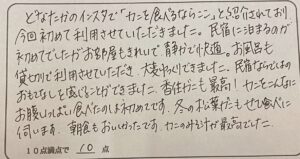 どなたかのインスタで「カニを食べるならここ」と紹介されており
今回初めて利用させていただきました。民宿に泊まるのが
初めてでしたがお部屋もきれいで静かで快適。お風呂も
貸切りで利用させていただき、大変ゆっくりできました。民宿ならではの
おもてなしを感じることができました。香住ガニも最高！カニをこんなに
お腹いっぱい食べたのは初めてです。冬の松葉ガニもぜひ食べに
伺います。朝食もおいしかったです。カニのみそ汁が最高でした。
10点満点で 10 点